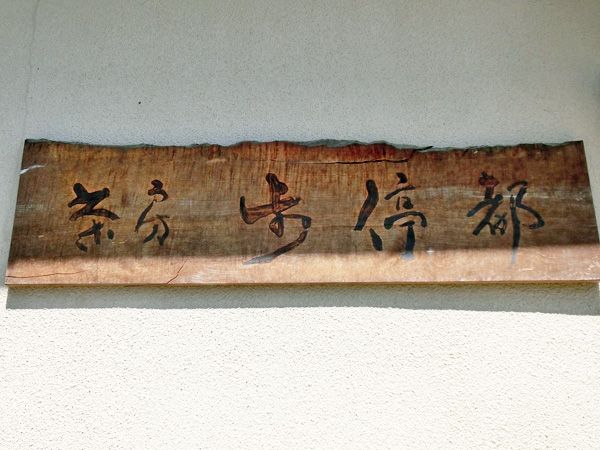 茶房 歩停都